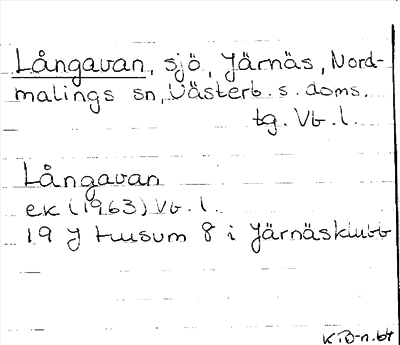 Långavan, sjö, Järnäs, Nord-
malings sn, Västerb. s. doms.
tg. Vb. l.
Långavan
ek (1963) Vb. l.
19 J Husum 8 i Järnäsklubb